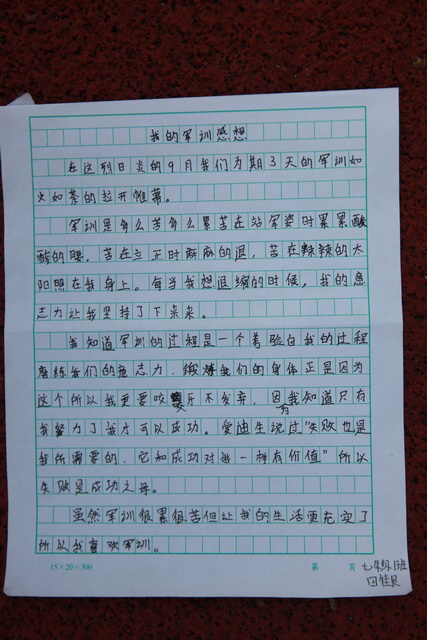 我的军训感想
在这烈日炎的9月我们为期3天的军训如
火如荼的拉开帷幕。
军训是多么苦多么累苦在站军姿时累累酸
酸的腰，苦在立正时麻麻的退，苦在辣辣的太
阳照在我身上。每当我想退缩的时候，我的意
志力让我坚持了下来来。
我知道军训的过程是一个考验自我的过程
磨练我们的意志力，锻炼我们的身体正是因为
这个所以我更要咬牙不放弃，因为我知道只有
我努力了我才可以成功。爱迪生说过"失败也是
我所需要的，它和成功对我一样有价值"所以
失败是成功之母。
虽然军训很累很苦但让我的生活更充实了
所以我喜欢军训。
15×20=300
第 页
七年级1班